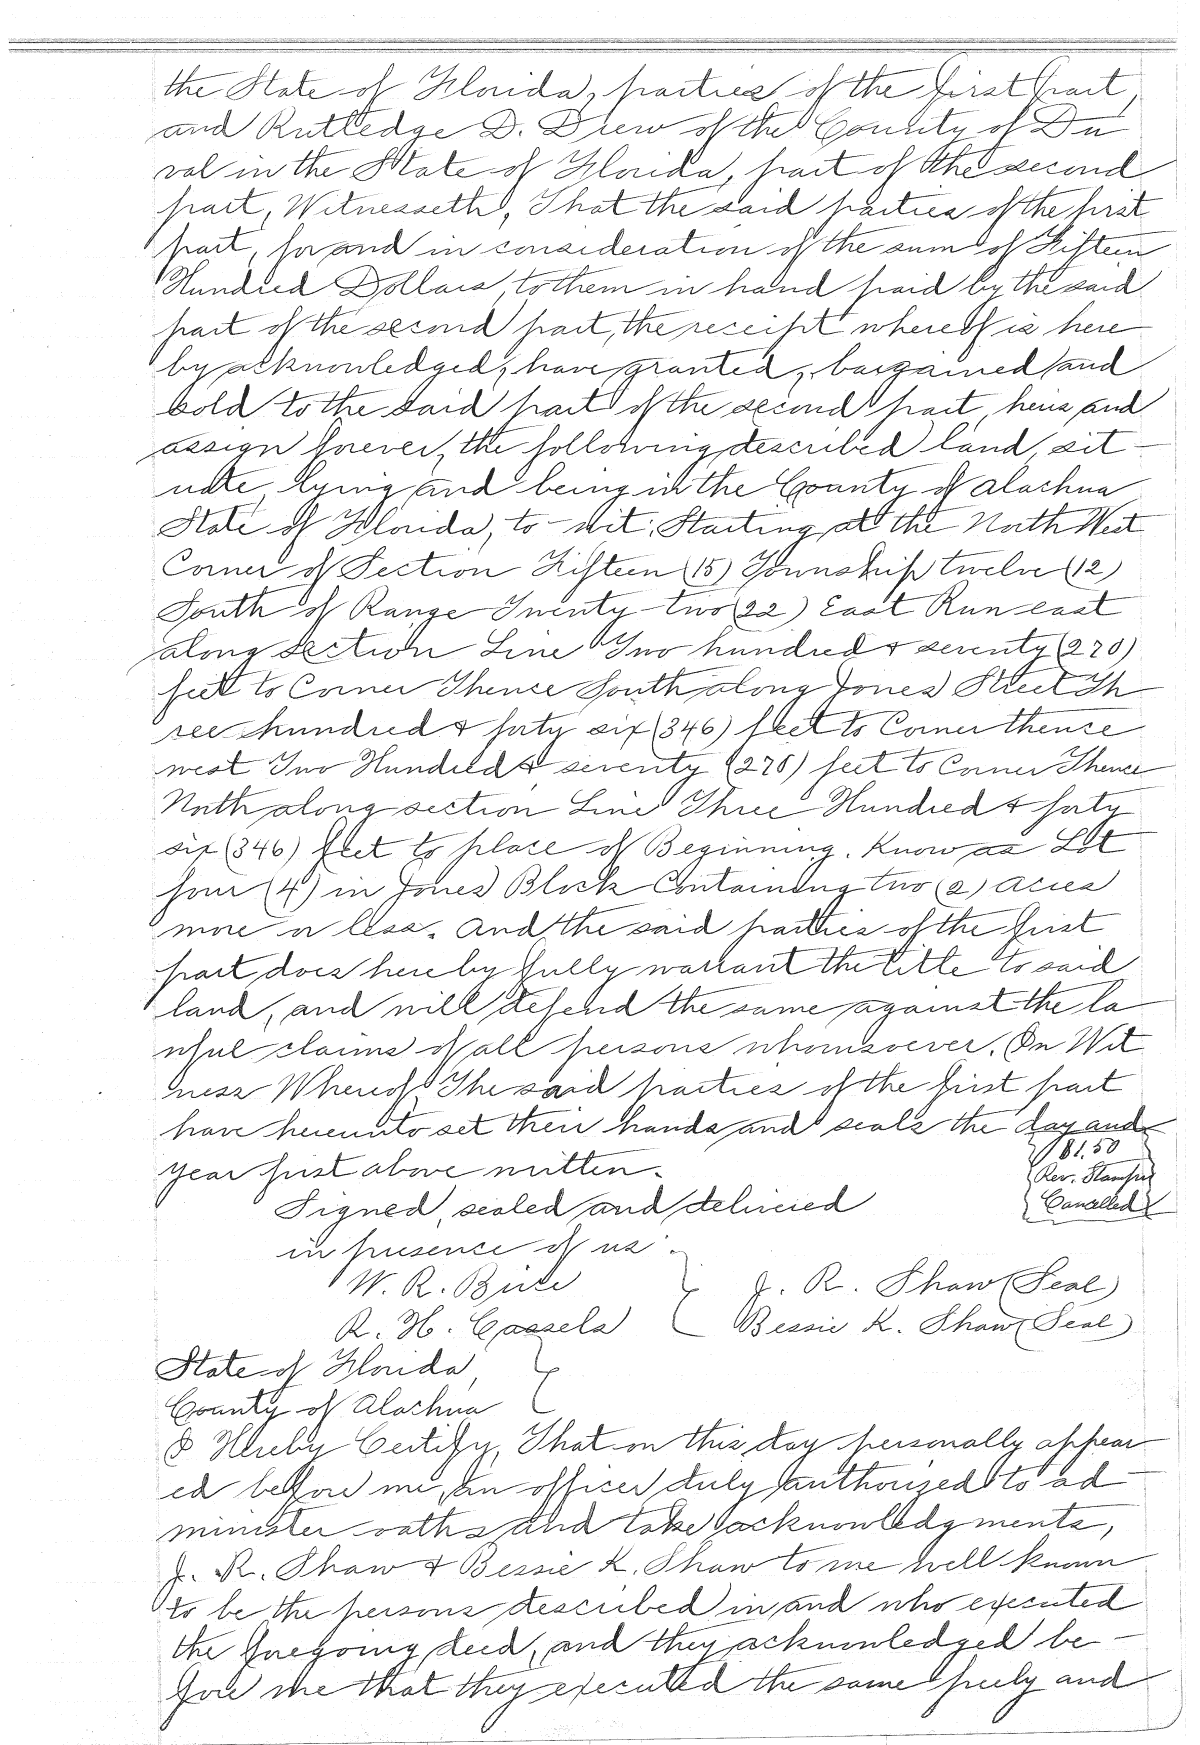 the State of Florida, parties of the first part,
and Rutledge D. Drew of the County of Du
val in the State of Florida, part of the second
part, Witnesseth, That the said parties of the first
part, for and in consideration of the sum of Fifteen
Hundred Dollars, to them in hand paid by the said
part of the second part, the receipt whereof is here
by acknowledged, have granted, bargained and
sold to the said part of the second part, heirs and
assign forever, the following described land, sit-
uate, lying and being in the County of Alachua
State of Florida, to-wit: Starting at the North West
Corner of Section Fifteen (15) Township twelve (12)
South of Range Twenty-two (22) East Run east
along section Line Two hundred & seventy (270)
feet to Corner Thence South along Jones Street Th
ree hundred & forty six (346) feet to Corner thence
west Two Hundred & seventy (270) feet to Corner Thence
North along section Line Three Hundred & forty
six (346) feet to place of Beginning. Know as Lot
four (4) in Jones Block Containing two (2) acres
more or less. And the said parties of the first
part does hereby fully warrant the title to said
land, and will defend the same against the la
wful claims of all persons whomsoever. In Wit
ness Whereof, The said parties of the first part
have hereunto set their hands and seals the day and
year first above written.
$1.50
Rev. Stamps
Cancelled
Signed, sealed and delivered
in presence of us:
W. R. Bice J. R. Shaw (Seal)
R. H. Cassels Bessie K. Shaw (Seal)
State of Florida,
County of Alachua
I Hereby Certify, That on this day personally appear
ed before me, an officer duly authorized to ad-
minister oaths and take acknowledgments,
J. R. Shaw & Bessie K. Shaw to me well known
to be the persons described in and who executed
the foregoing deed, and they acknowledged be-
fore me that they executed the same freely and